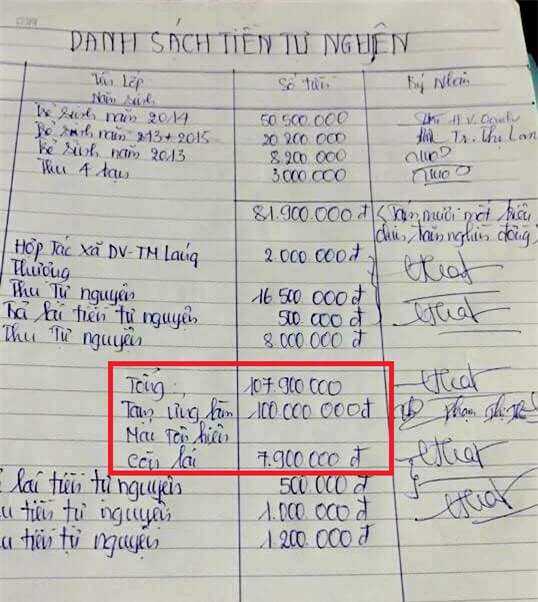 DANH SÁCH TIỀN TỰ NGHUYỆN
Tên Lớp Số tiền Ký Nhận
Năm sinh
Bé sinh năm 2014 50 500.000
Bé sinh năm 213 + 2015 20 200 000 Tr. Thị Lan
Bé sinh năm 2013 8 200 000
Thu 4 3 000 000
81.900.000 đ (Tám mươi mốt triệu
chín trăm nghìn đồng)
Hợp Tác xã DV-TM Láng 2.000.000 đ
Thượng
Thu Tự nguyện 16 500 000 đ
Trả lại tiền tự nguyện 500 000 đ
Thu Tự nguyện 8.000.000
Tổng 107.900 000
Tạm ứng làm 100.000 000 đ Phạm
Mái Tôn hiên
Còn lại 7.900.000 đ
lại tiền tự nguyện 500.000 đ
tiền tự nguyện 1.000 000 đ
u tiền tự nguyện 1.200 000 đ